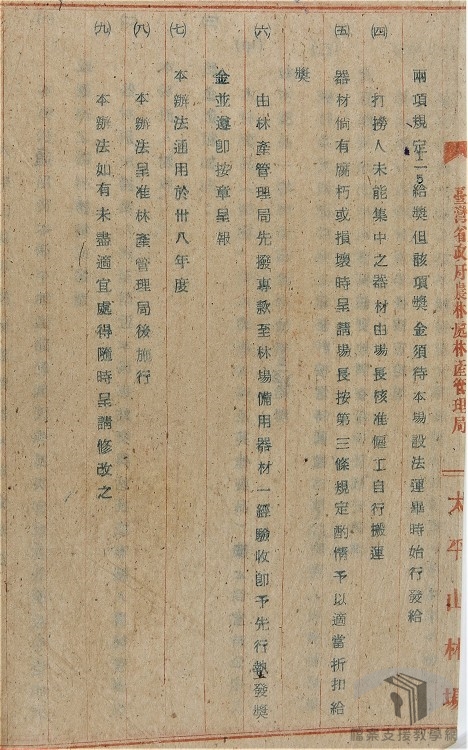 臺灣省政府農林處林產管理局
太平山林場
兩項規定1－5給獎但該項獎金須待本場設法運畢時始行發給
㈣ 打撈人未能集中之器材由場長核准僱工自行搬運
㈤ 器材倘有腐朽或損壞時呈請場長按第三條規定酌情予以適當折扣給
獎
㈥ 由林產管理局先撥專款至林場備用器材一經驗收即予先行墊發獎
金並遵即按章呈報
㈦ 本辦法通用於卅八年度
㈧ 本辦法呈准林產管理局後施行
㈨ 本辦法如有未盡適宜處得隨時呈請修改之
檔案支援教學網